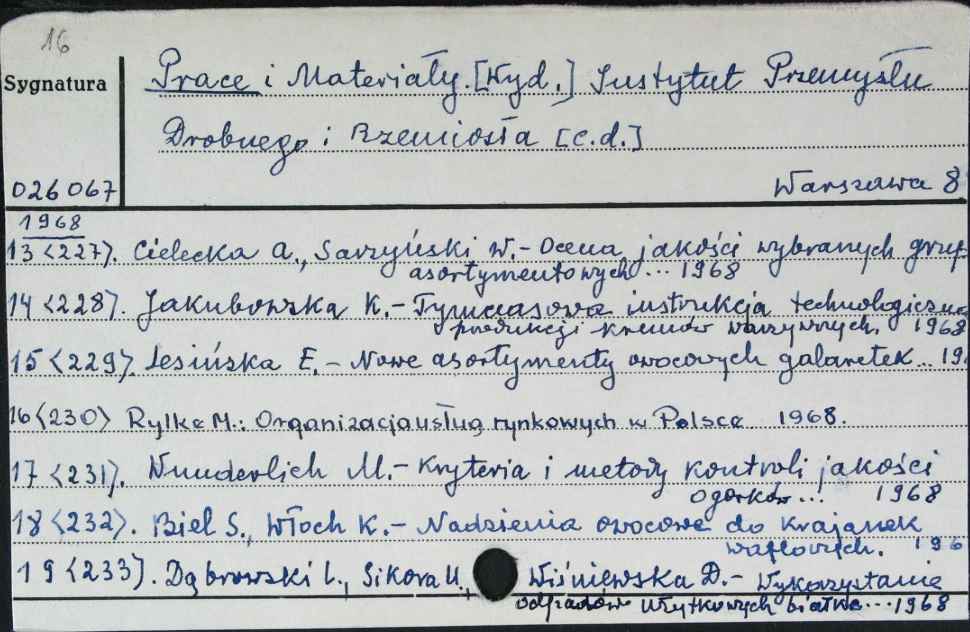 16
Sygnatura
Prace i Materiały. [Wyd.] Instytut Przemysłu
Drobnego i Rzemiosła [c.d.]
026 067
Warszawa 8
1968
13 <227>. Cielecka A., Sarzyński W. - Ocena jakości wybranych grup
asortymentowych ... 1968
14 <228>. Jakubowska K. - Tymczasowa instrukcja technologiczna
produkcji kremów warzywnych. 1968
15 <229>. Lesińska E. - Nowe asortymenty owocowych galaretek .. 19
16 <230> Rylke M.: Organizacja usług rynkowych w Polsce 1968.
17 <231>. Wunderlich M. - Kryteria i metody kontroli jakości
ogórków... 1968
18 <232>. Biel S., Włoch K. - Nadzienia owocowe do krajanek
waflowych. 196
19 <233>. Dąbrowski L., Sikora U., Wiśniewska D. - Wykorzystanie
odpadów użytkowych białka ... 1968